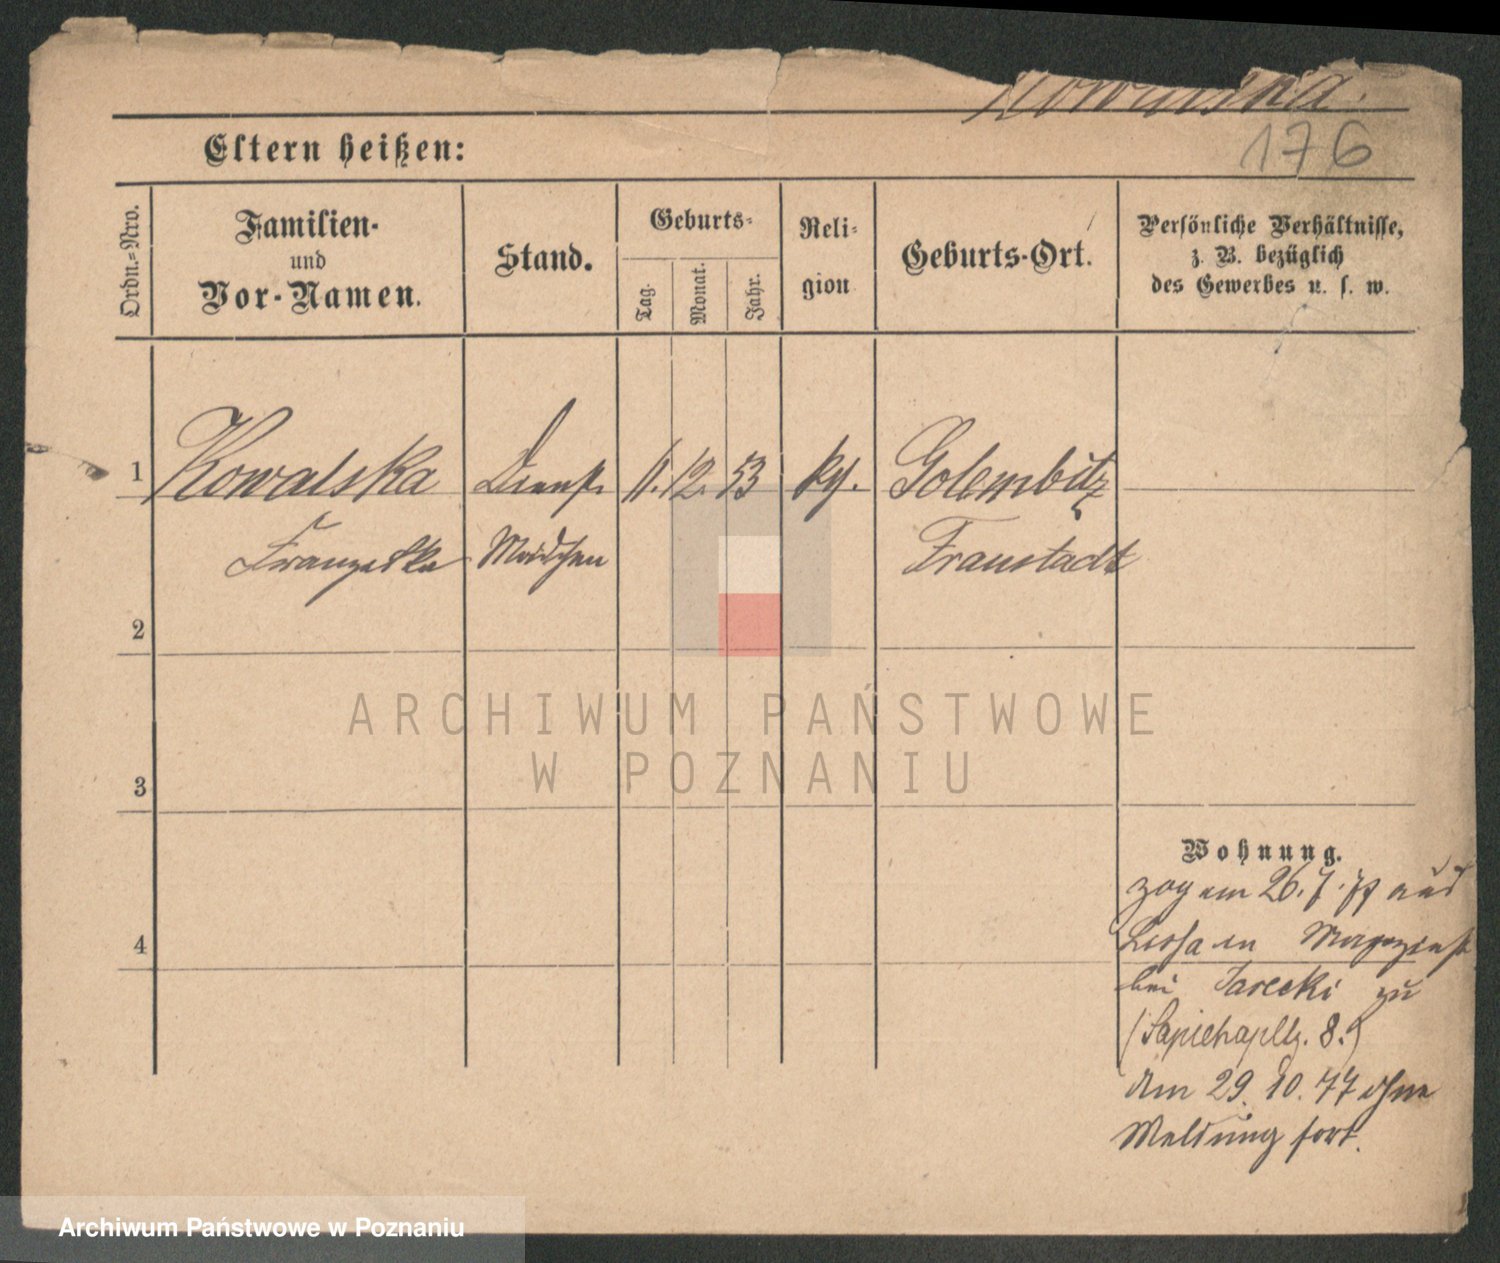 Kowalska.
176
Eltern heißen:
Ordn.-Nro.
Familien-
und
Vor-Namen.
Stand.
Geburts-
Tag.
Monat.
Jahr.
Reli-
gion
Geburts-Ort.
Persönliche Verhältnisse,
z. B. bezüglich
des Gewerbes u. s. w.
1 Kowalska Dienst 11. 12. 53 kth. Golembitz
Franziska Mädchen Fraustadt
2
3
4
Wohnung.
zog am 26. 7. 77 aus
Lissa in
bei Jarecki zu
(Sapiehapltz. 8.)
Am 29. 10. 77 ohne
Meldung fort.
ARCHIWUM PAŃSTWOWE
W POZNANIU
Archiwum Państwowe w Poznaniu